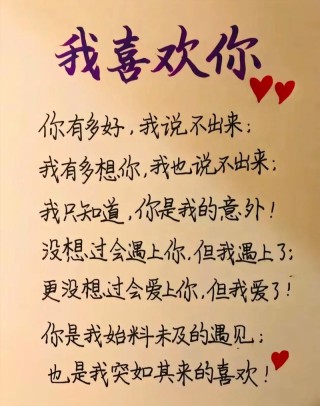 我喜欢你
你有多好,我说不出来;
我有多想你,我也说不出来;
我只知道,你是我的意外!
没想过会遇上你,但我遇上了;
更没想过会爱上你,但我爱了!
你是我始料未及的遇见;
也是我突如其来的喜欢!